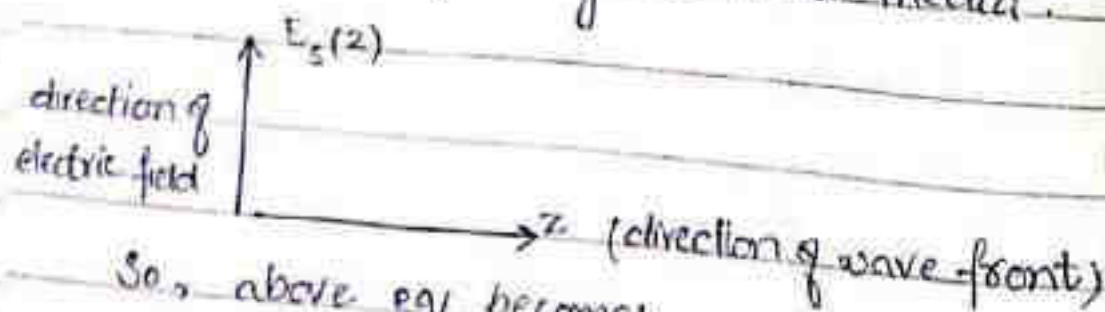 E_s(2)
direction of
electric field
z (direction of wave-front)
So, above eq/ becomes